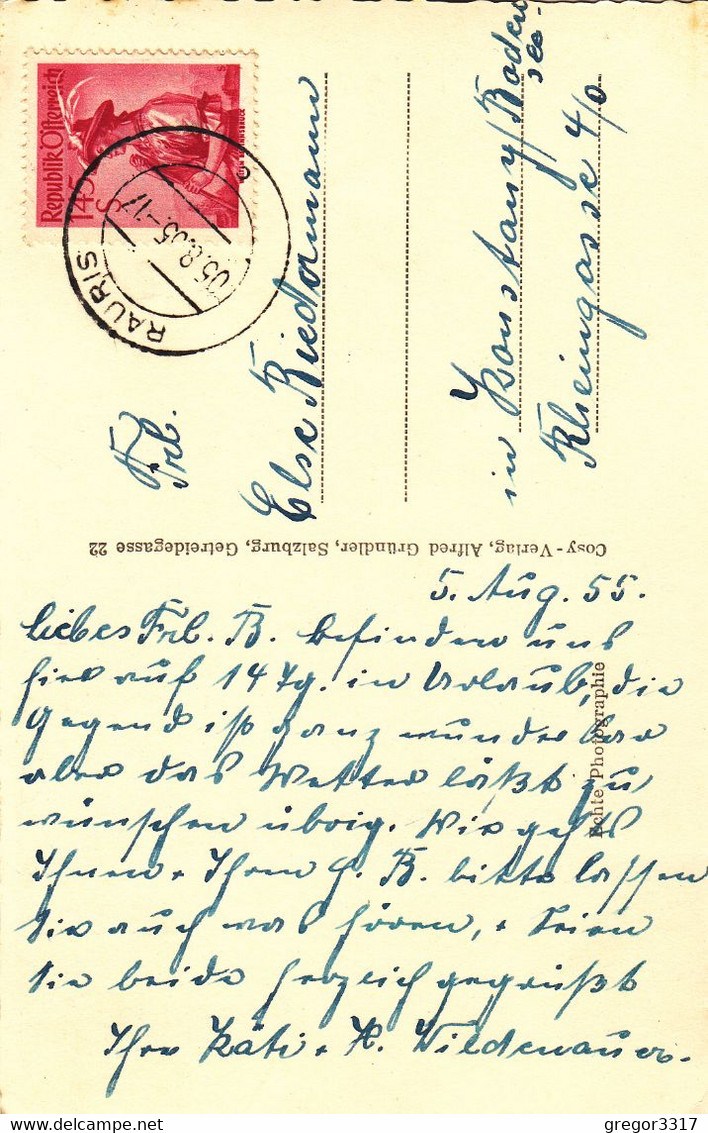 Republik Österreich
1.45 S
RAURIS
05.8.55.-17
Frl.
Else Riedormann
in Konstanz/Boden
see.
Rheingasse 4/0
Cosy-Verlag, Alfred Gründler, Salzburg, Getreidegasse 22
Echte Photographie
5. Aug. 55.
liebes Frl. B. befinden uns
hier auf 14 Tg. in Urlaub, die
Gegend ist ganz wunderbar
aber das Wetter läßt zu
wünschen übrig. Wie gehts
Ihnen + Ihrem H. B. bitte lassen
Sie auch was hören, + Seien
Sie beide herzlich gegrüßt
Ihre Käti + H. Wildenauer.
gregor3317